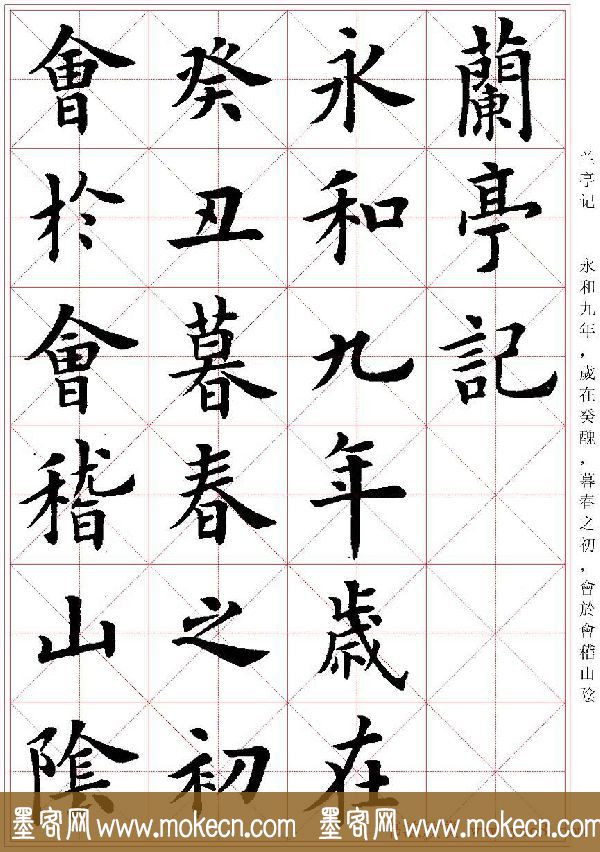 蘭亭記
永和九年歲在
癸丑暮春之初
會於會稽山陰
兰亭记 永和九年，歲在癸醜，暮春之初，會於會稽山陰
墨客网 www.mokecn.com 墨客网 www.mokecn.com